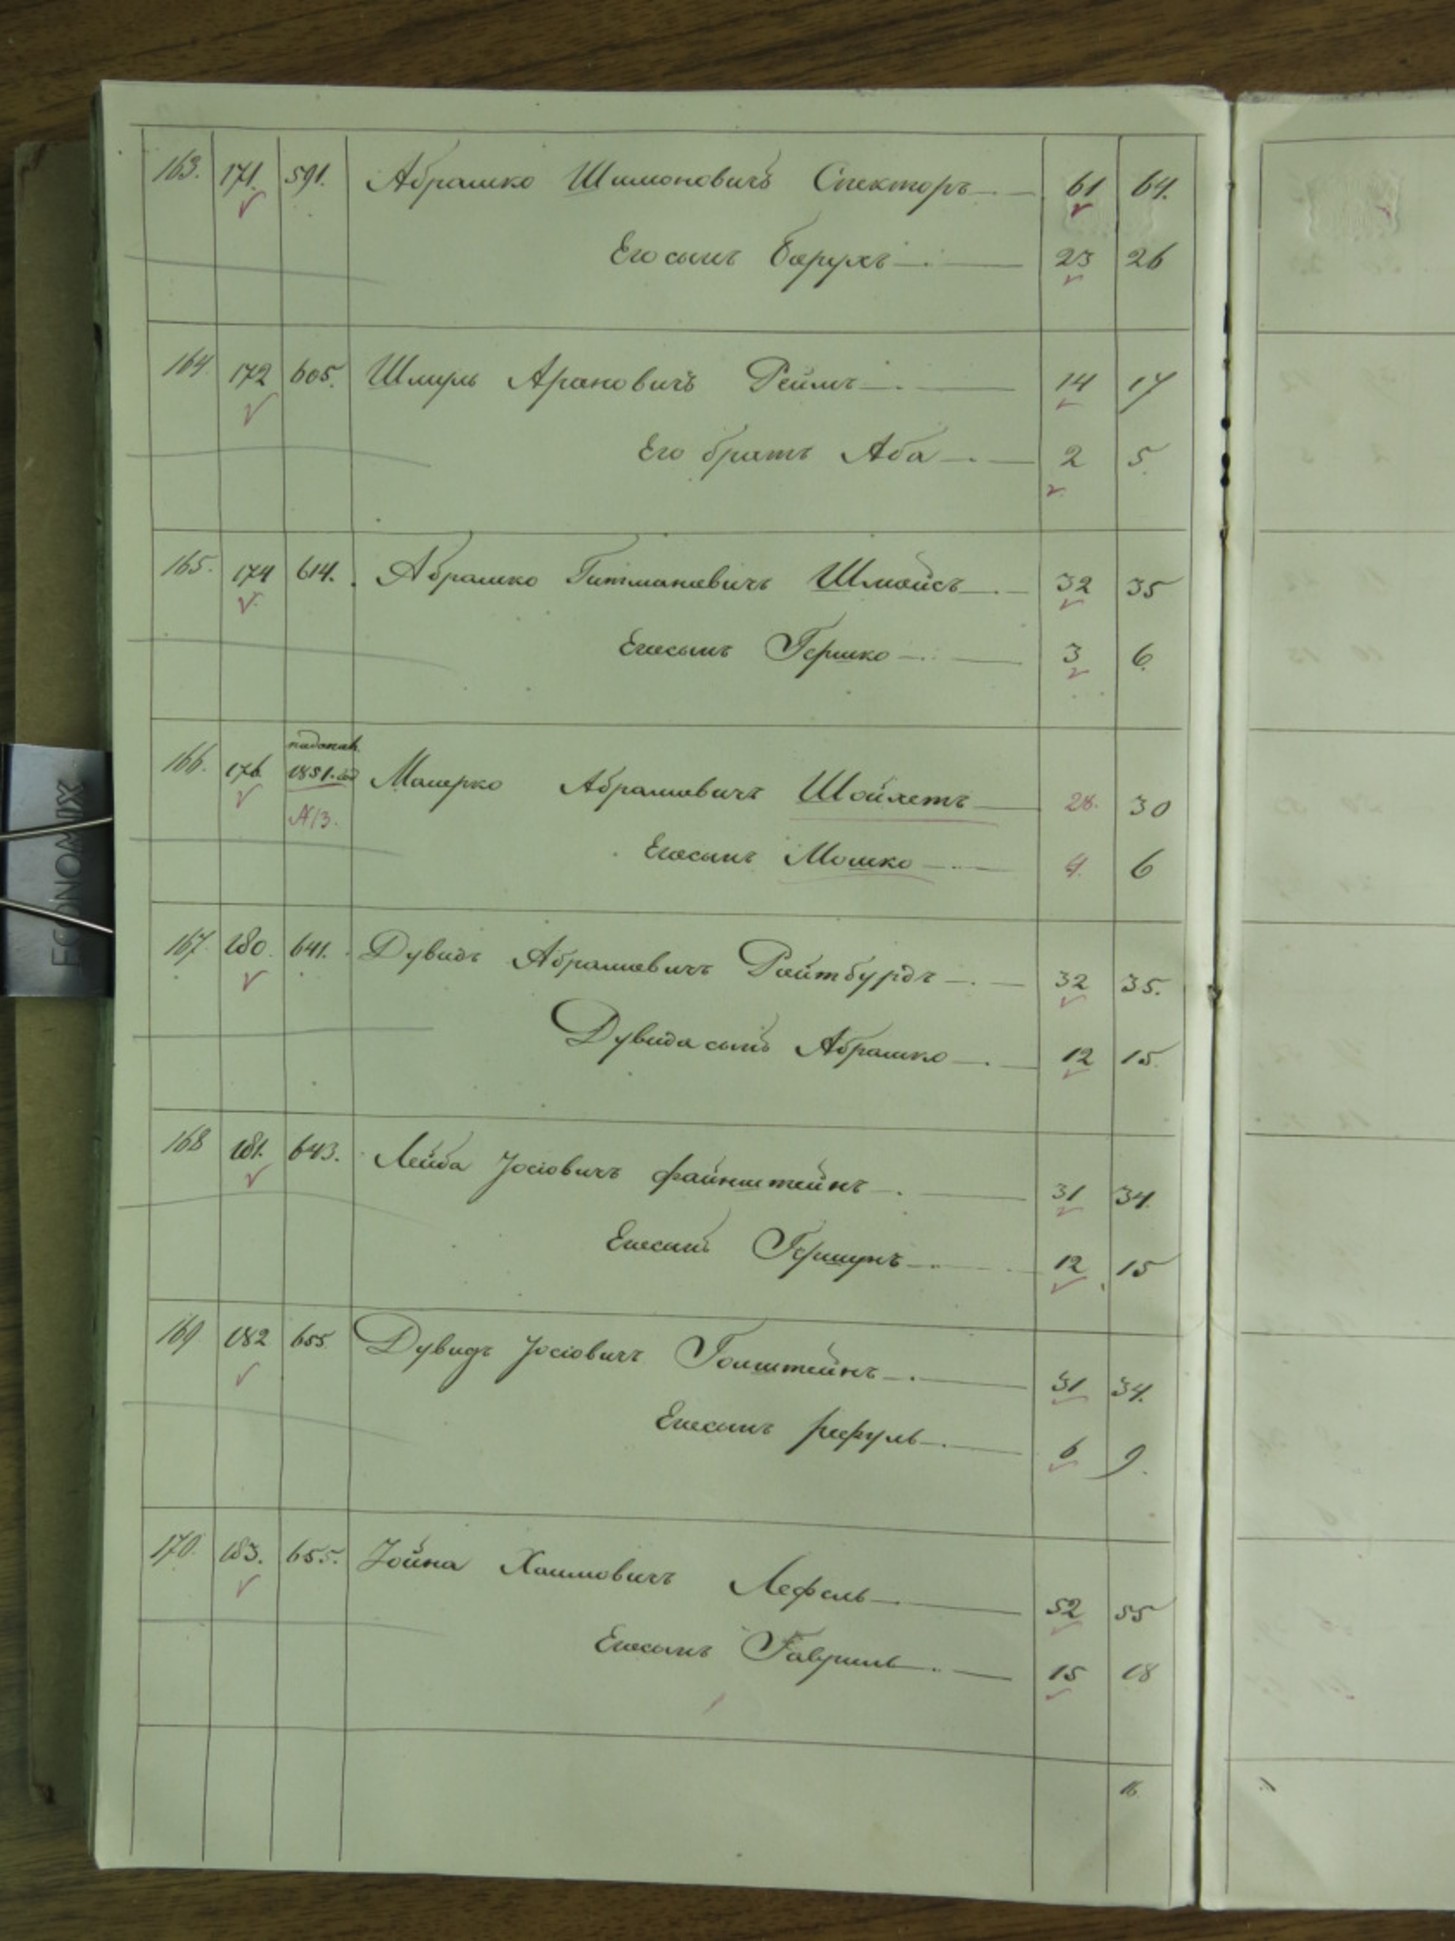 163. 171. 591. Абрашко Шимоновичъ Спекторъ 61 64.
Его сынъ Барухъ 23 26
164. 172 605. Шмуль Арановичъ Реймъ 14 17
Его братъ Аба 2 5.
165. 174 614. Абрашко Гитмановичъ Шмойсъ 32 35
Его сынъ Гершко 3 6
166. 176 1851. Маиерко Абрамовичъ Шойхетъ 28. 30
№13.
Его сынъ Мошко 4. 6
167. 180. 641. Дувидъ Абрамовичъ Ройтбурдъ 32 35.
Дувида сынъ Абрашко 12 15.
168 181. 643. Лейба Іосіовичъ Файнштейнъ 31 34.
Его сынъ Гершунъ 12 15
169 182 655 Дувидъ Іосіовичъ Гоинштейнъ 31 34.
Его сынъ 6 9.
170. 183. 655. Іойна Хаимовичъ Лефель 52 55
Его сынъ Гавриль 15 18
16.
ECONOMIX